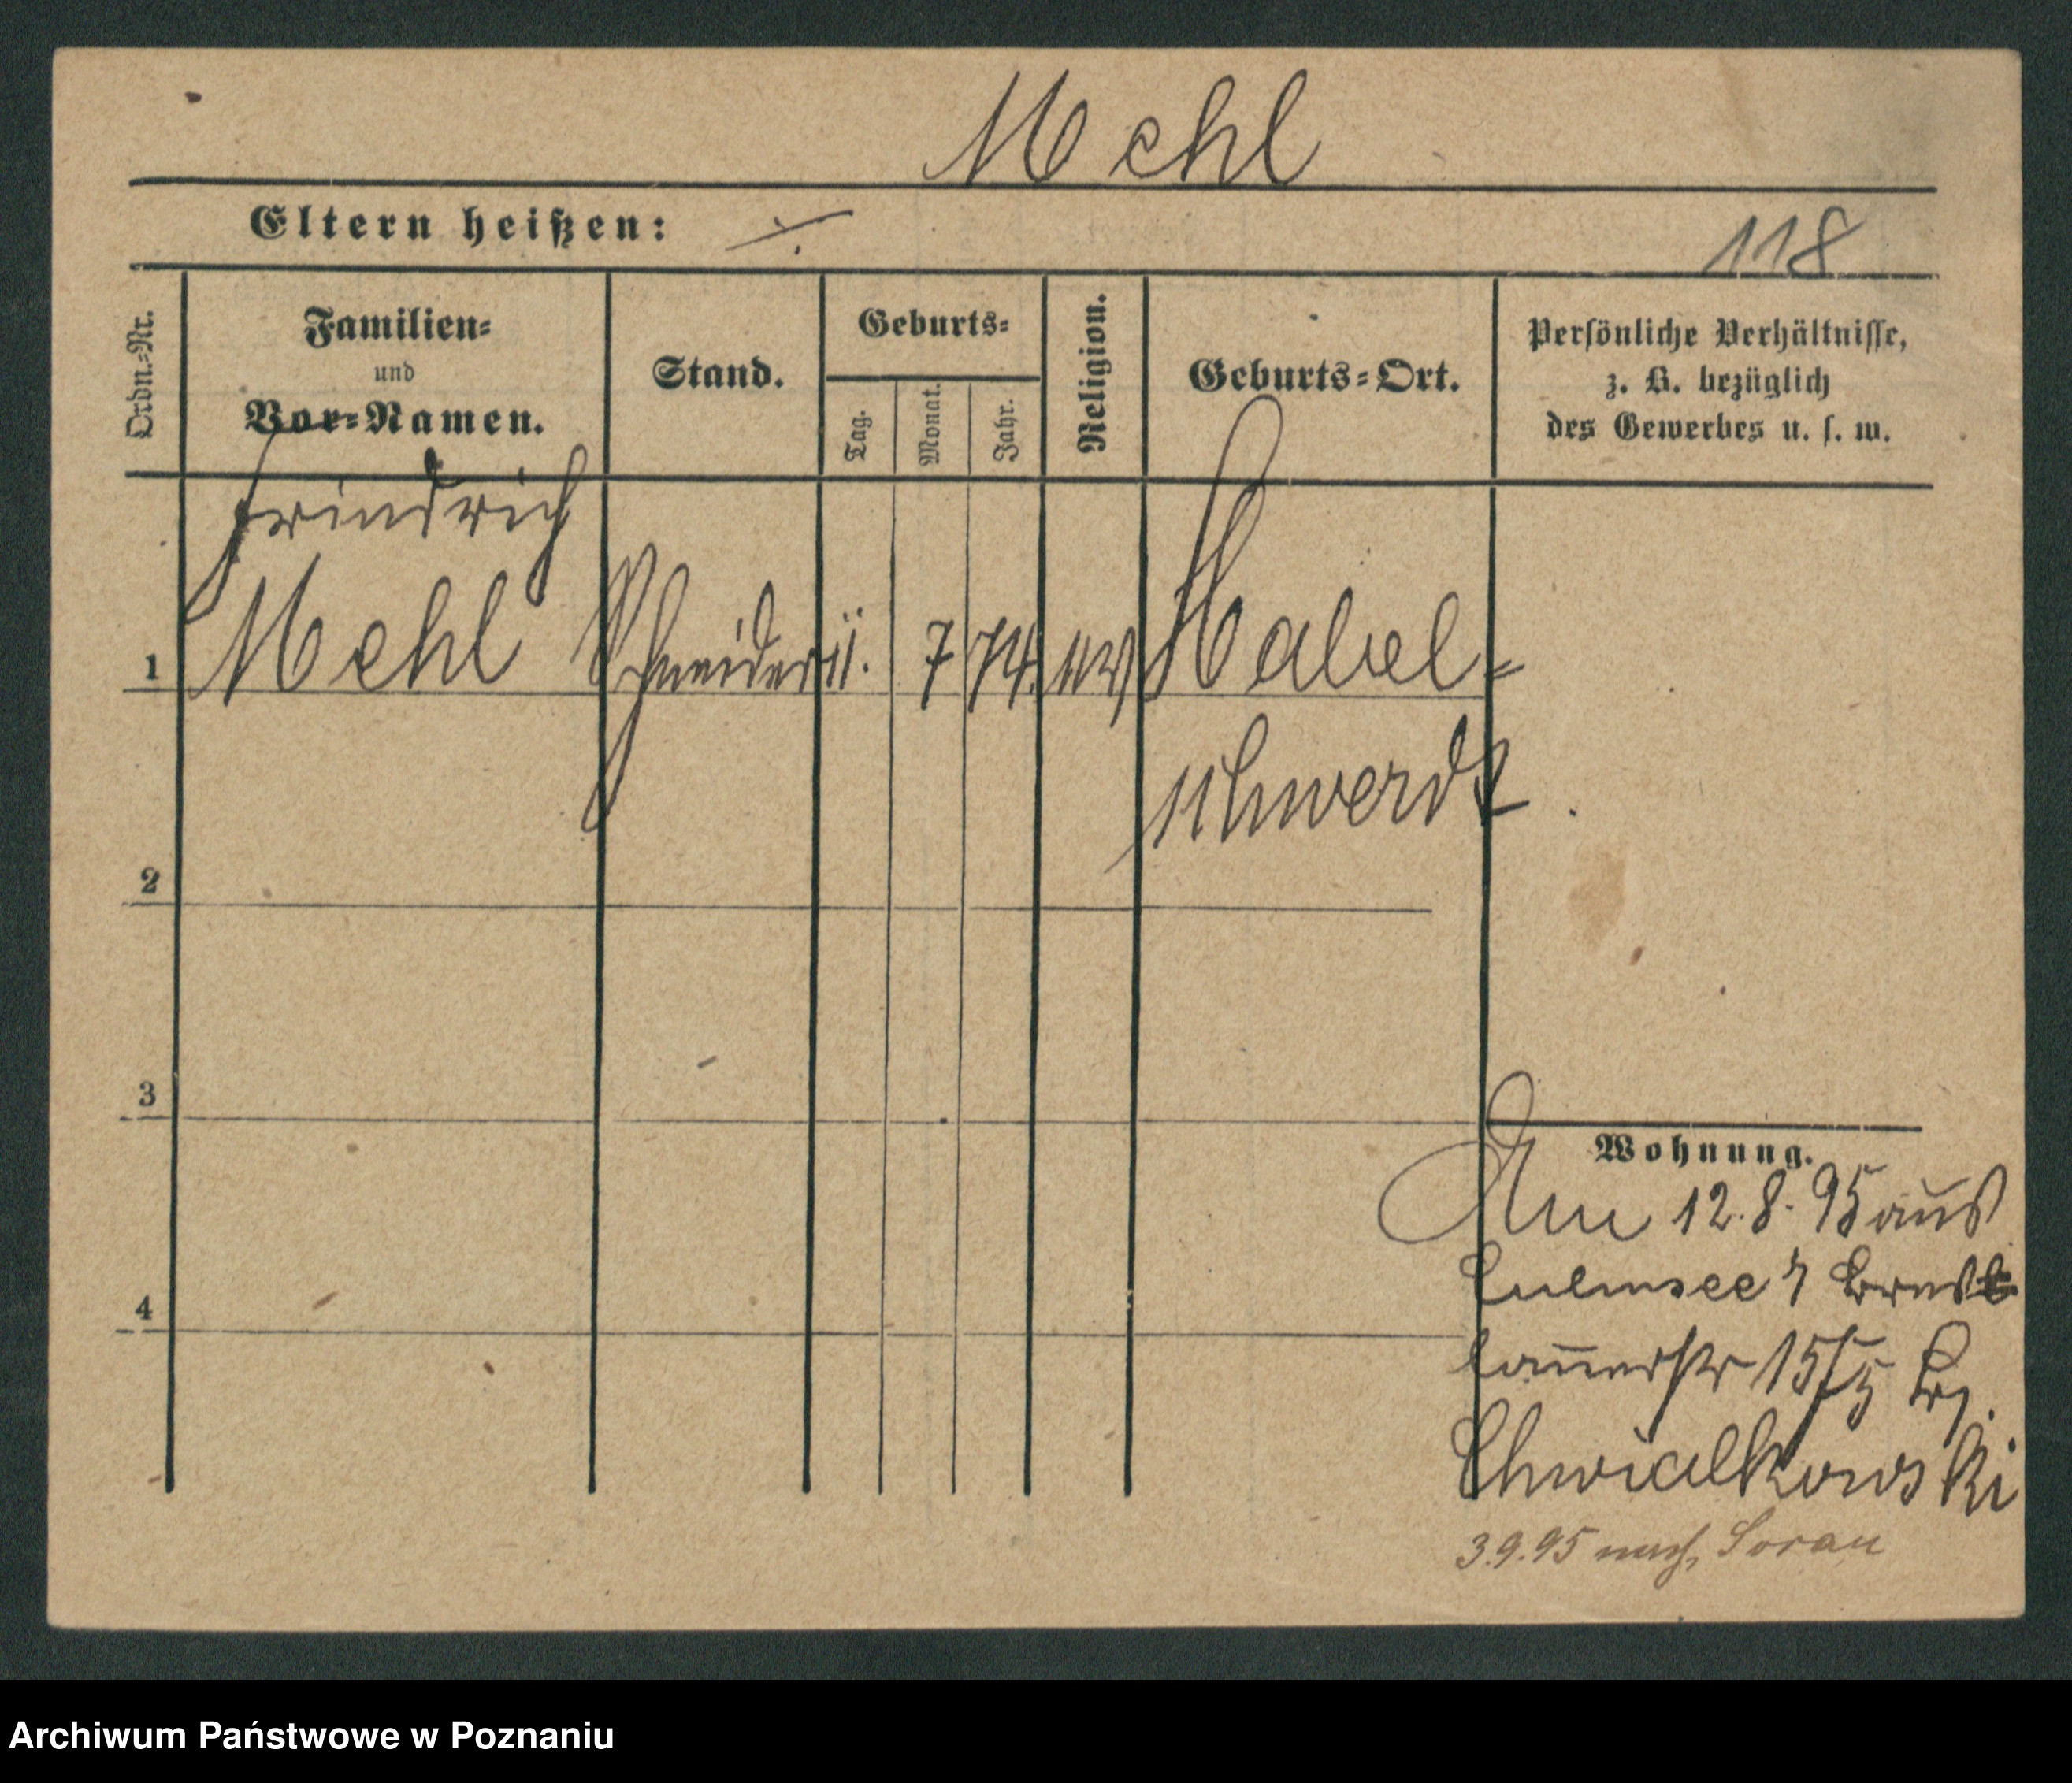 Mehl
Eltern heißen: ./.
118
Ordn.=Nr.
Familien=
und
Vor=Namen.
Stand.
Geburts=
Tag.
Monat.
Jahr.
Religion.
Geburts=Ort.
Persönliche Verhältnisse,
z. B. bezüglich
des Gewerbes u. s. w.
Friedrich
1 Mehl Schneider 11. 7 74. Habel=
schwerdt
2
3
4
Wohnung.
Am 12.8.95 aus
Culmsee
15/
Chwialkowski
3.9.95 nach Sorau
Archiwum Państwowe w Poznaniu